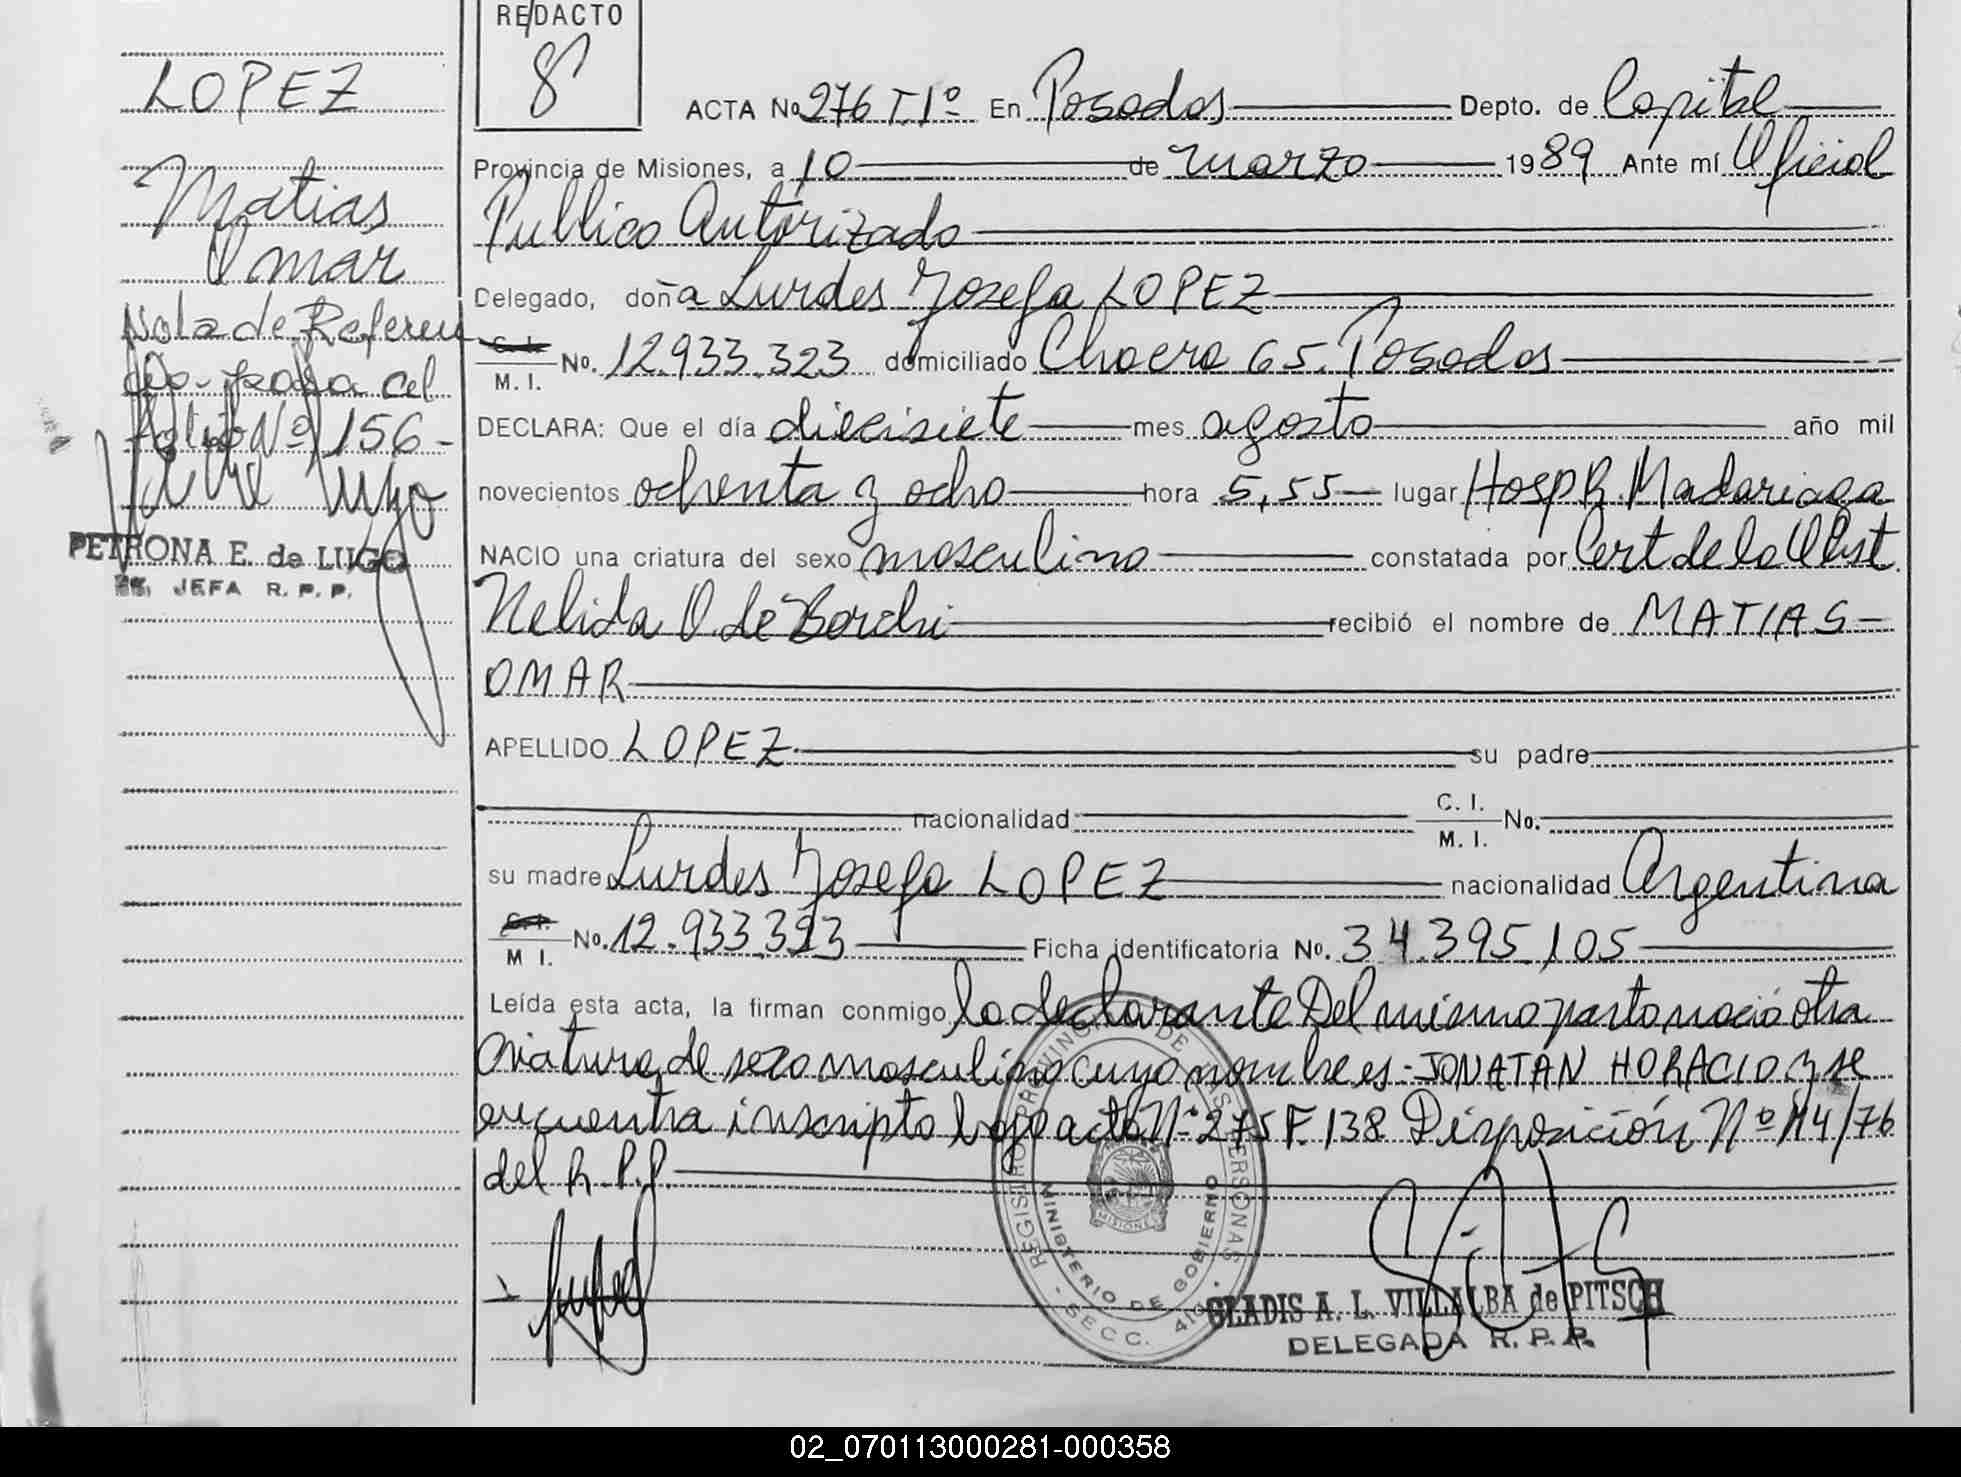 REDACTO
8
LOPEZ
Matias
Omar
Nota de Referen
cia
folio Nº 156-
PETRONA E. de LUGO
JEFA R. P. P.
ACTA No 276 T.1º En Posadas Depto. de Capital
Provincia de Misiones, a 10 de marzo 1989 Ante mí Oficial
Publico Autorizado
Delegado, doña Lurdes Josefa LOPEZ
C. I.
M. I. No. 12.933.323 domiciliado Chacra 65. Posadas
DECLARA: Que el día diecisiete mes agosto año mil
novecientos ochenta y ocho hora 5,55 lugar Hosp R. Madariaga
NACIO una criatura del sexo masculino constatada por Cert de la Obst
Nelida O. de Borchi recibió el nombre de MATIAS
OMAR
APELLIDO LOPEZ su padre
nacionalidad C. I.
M. I. No.
su madre Lurdes Josefa LOPEZ nacionalidad Argentina
M I. No. 12.933.323 Ficha identificatoria No. 34.395.105
Leída esta acta, la firman conmigo la declarante Del mismo parto nació otra
criatura de sexo masculino cuyo nombre es- JONATAN HORACIO y se
encuentra inscripto bajo acta Nº 275 F. 138 Disposición Nº 114/76
del R.P.P.
REGISTRO PROVINCIAL DE LAS PERSONAS
MINISTERIO DE GOBIERNO
MISIONES
SECC. 410
GLADIS A. L. VILLALBA de PITSCH
DELEGADA R. P. P.
02_070113000281-000358